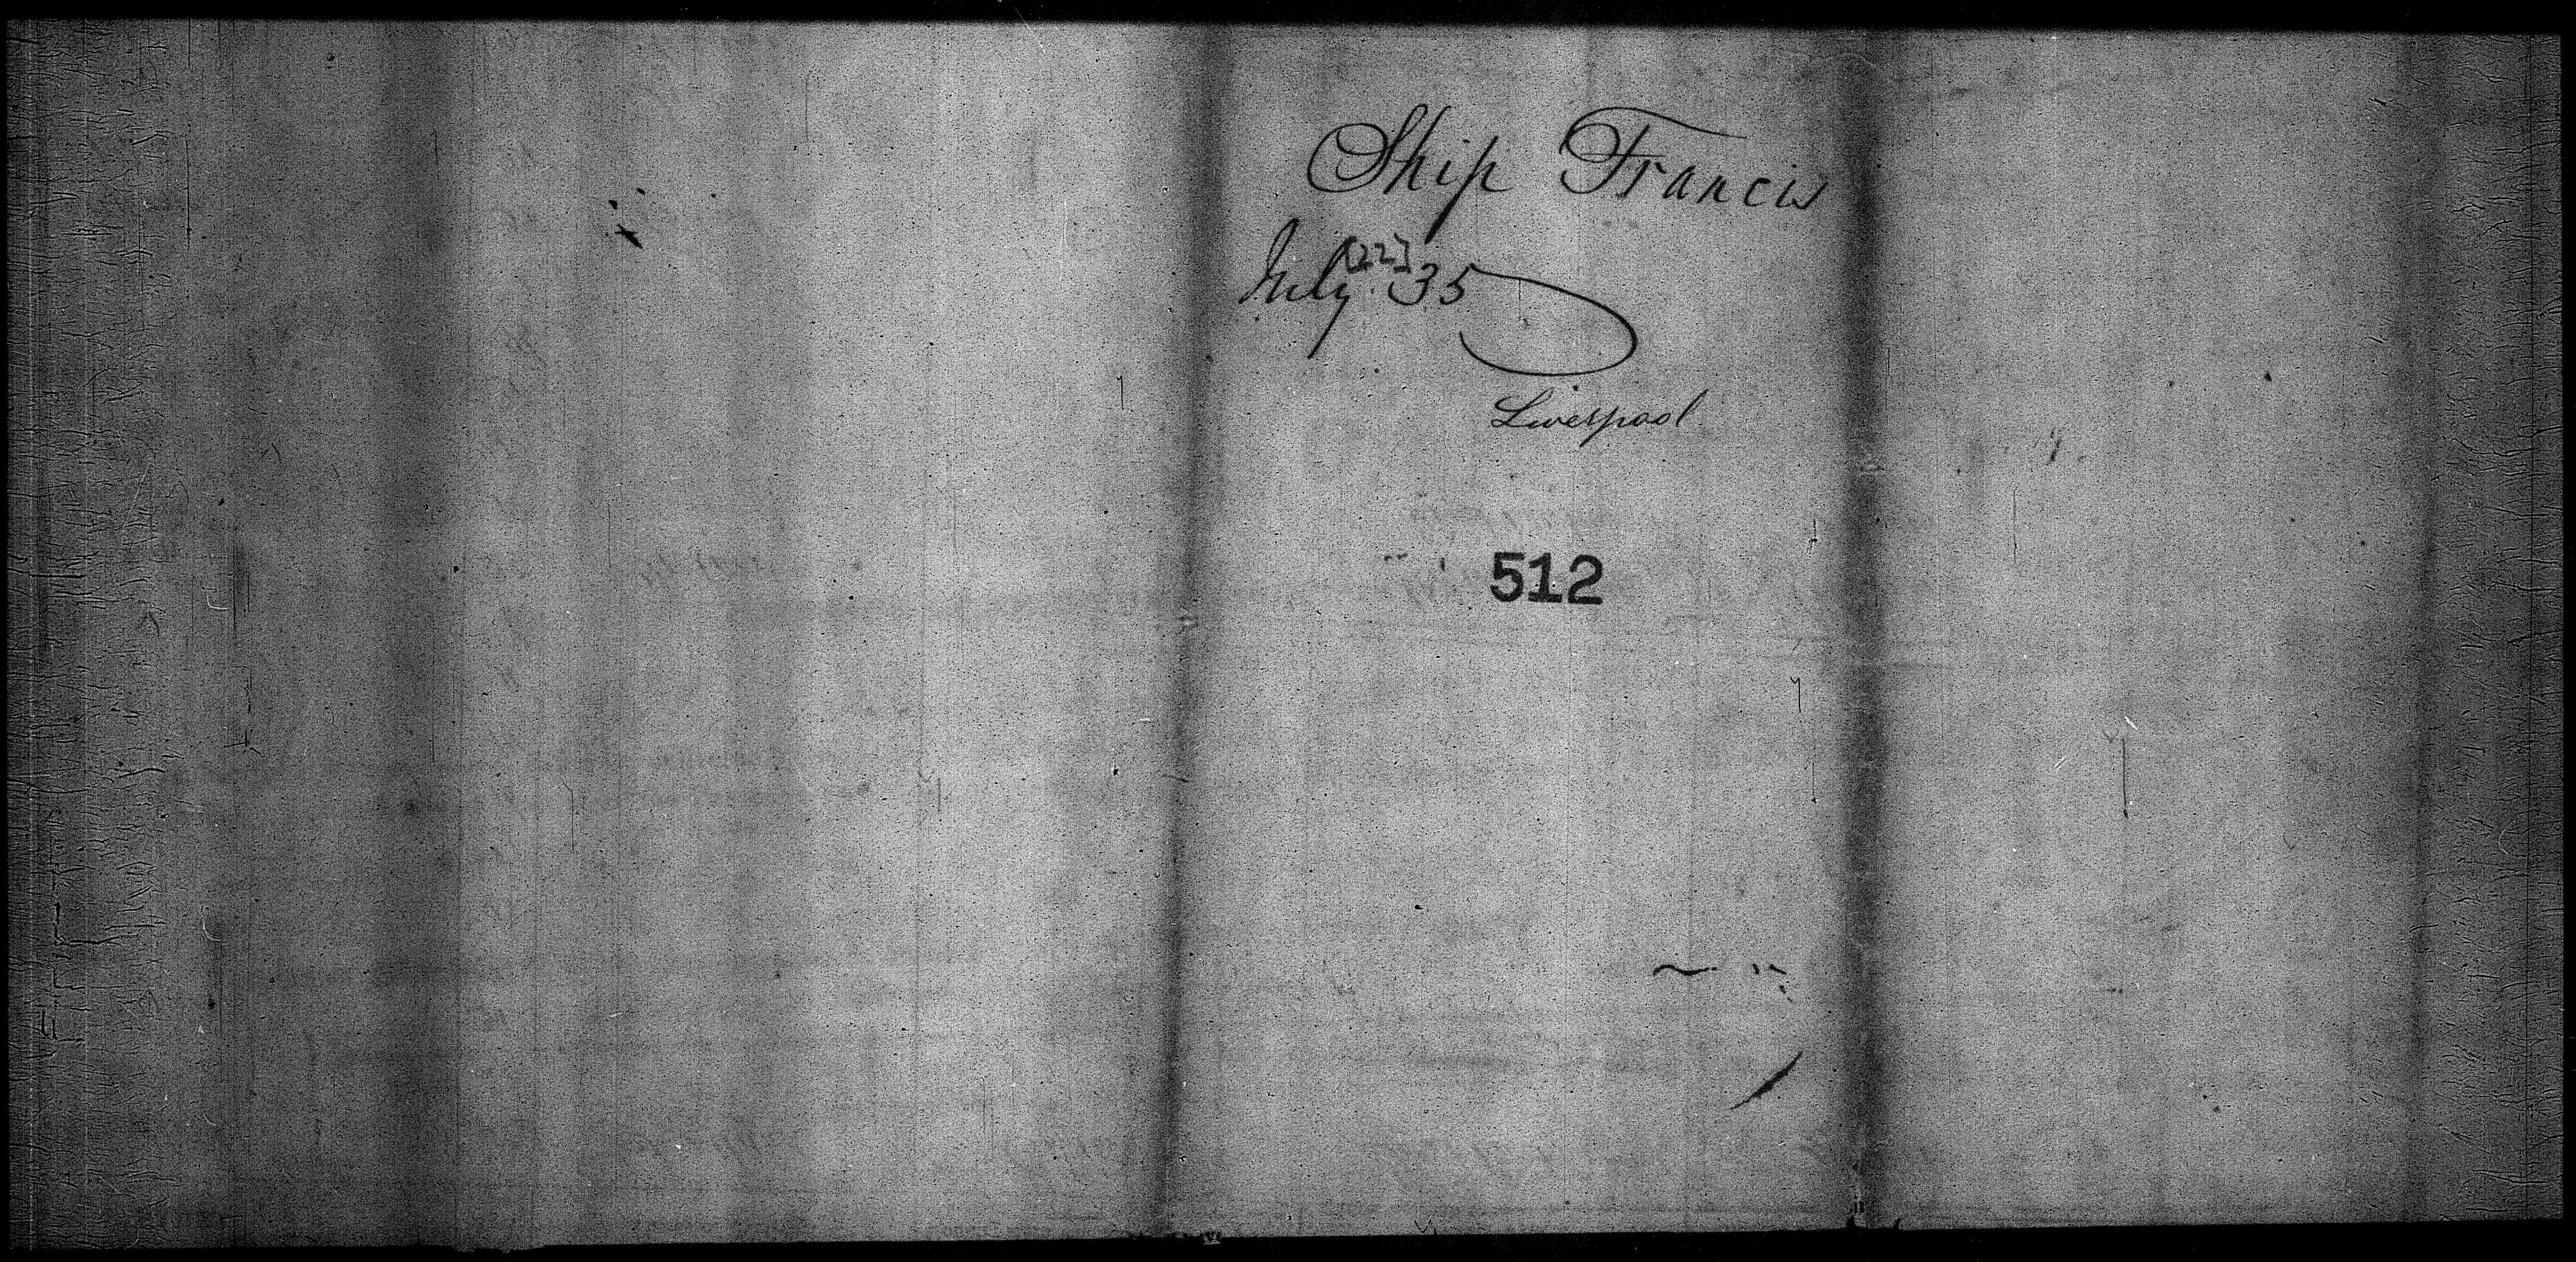 Ship Francis
July [22] 35
Liverpool
512